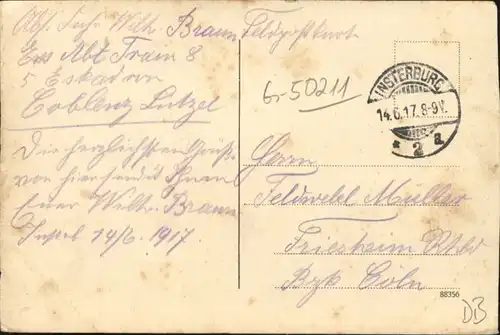 Abs. Wilh. Braun
Ers Abt Train 8
5 Eskadron
Coblenz Lutzel
Die herzlichsten Grüße
von hier sendet Ihnen
Euer Wilh. Braun
14/6 1917
Feldpostkarte
6-50211
INSTERBURG
14.6.17.8-9V.
* 2 a.
Herrn
Feldwebel Müller
Friesheim
Bzk Cöln
88356
DB